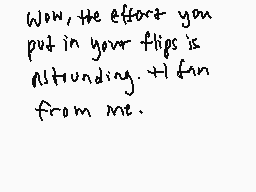 Wow, the effort you
put in your flips is
astounding. +1 fan
from me.